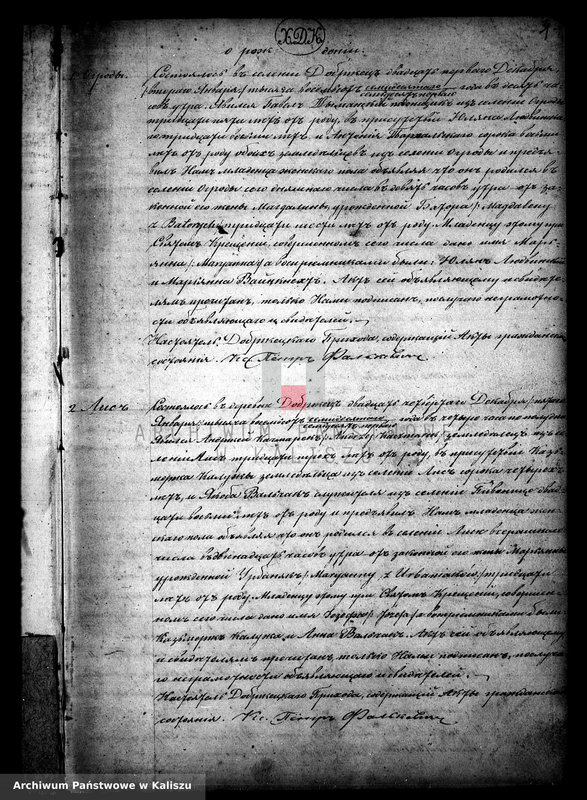 1
о рож дении.
1 Огроды. Состоялось въ селенiи Добржецъ двадцать перваго Декабря
втораго Января тысяча восемьсотъ семидесятаго года въ десять ча-
семьдесятъ перваго
совъ утра. Явился Павелъ изъ селенiя Огроды
тридцати пяти лѣтъ отъ роду, въ присутствiи Юлiяна
тридцати лѣтъ и Антонiя сорока
лѣтъ отъ роду обоихъ земледѣльцевъ изъ селенiя Огроды и предъя-
вилъ Намъ младенца женскаго пола объявляя что онъ родился въ
селенiи Огроды сего дняшняго числа въ девять часовъ утра отъ за-
конной его жены Магдалины урожденной /Magdaleny
z Batorych/ тридцати шести лѣтъ отъ роду. Младенцу этому при
Святомъ Крещенiи, совершенномъ сего числа дано имя Марь-
янна /:Maryanna:/ а воспрiемниками были: Юлiянъ
и Марiянна. Актъ сей объявляющему и свидѣте-
лямъ прочитанъ, только Нами подписанъ, по случаю неграмотно-
сти объявляющаго и свидѣтелей.
Настоятель Добржецкаго Прихода, содержащiй Акты гражданскаго
состоянiя. Кс. Петръ Фалькевичъ
2 Лисъ Состоялось въ деревнѣ Добржецъ двадцать четвертаго Декабря/пятаго
Января/тысяча восемьсотъ семидесятаго года въ четыре часа по полудни
семьдесятъ перваго
Явился Андрей земледѣлецъ изъ се-
ленiя Лисъ тридцати трехъ лѣтъ отъ роду, въ присутствiи Кази-
мiржа Калужы земледѣльца изъ селенiя Лисъ сорока четырехъ
лѣтъ, и Якова служителя изъ селенiя два-
дцати восьми лѣтъ отъ роду и предъявилъ Намъ младенца жен-
скаго пола объявляя что онъ родился въ селенiи Лисъ вчерашняго
числа въ двенадцать часовъ утра отъ законной его жены Марiянны
урожденной Урбанякъ /Maryanny z Urbaniaków/ тридцати
лѣтъ отъ роду. Младенцу этому при Святомъ Крещенiи, совершен-
номъ сего числа дано имя Iозефа /:Józefa:/ а воспрiемниками были:
Казимiржъ Калужа и Анна. Актъ сей объявляющему
и свидѣтелямъ прочитанъ, только Нами подписанъ, по случаю
неграмотности объявляющаго и свидѣтелей.
Настоятель Добржецкаго Прихода, содержащiй Акты гражданскаго
состоянiя. Кс. Петръ Фалькевичъ
Archiwum Państwowe w Kaliszu